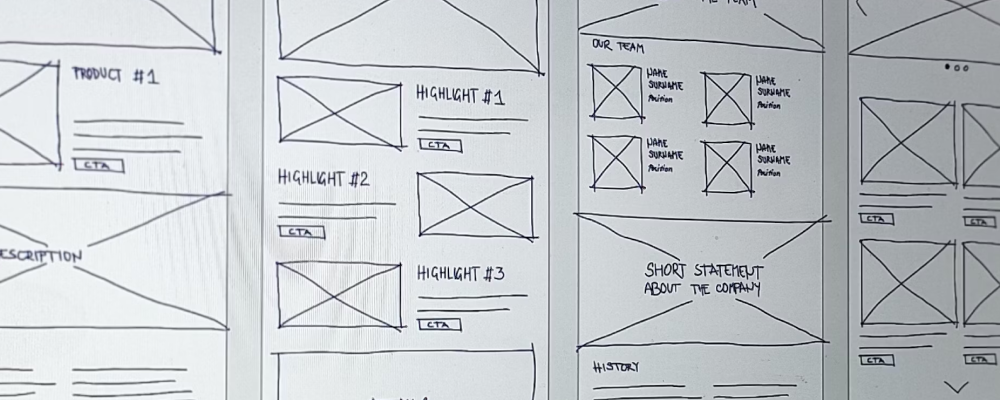 PRODUCT #1
CTA
ESCRIPTION
HIGHLIGHT #1
CTA
HIGHLIGHT #2
CTA
HIGHLIGHT #3
CTA
OUR TEAM
NAME
SURNAME
Position
NAME
SURNAME
Position
NAME
SURNAME
Position
NAME
SURNAME
Position
SHORT STATEMENT
ABOUT THE COMPANY
HISTORY
CTA
CTA
CTA
CTA